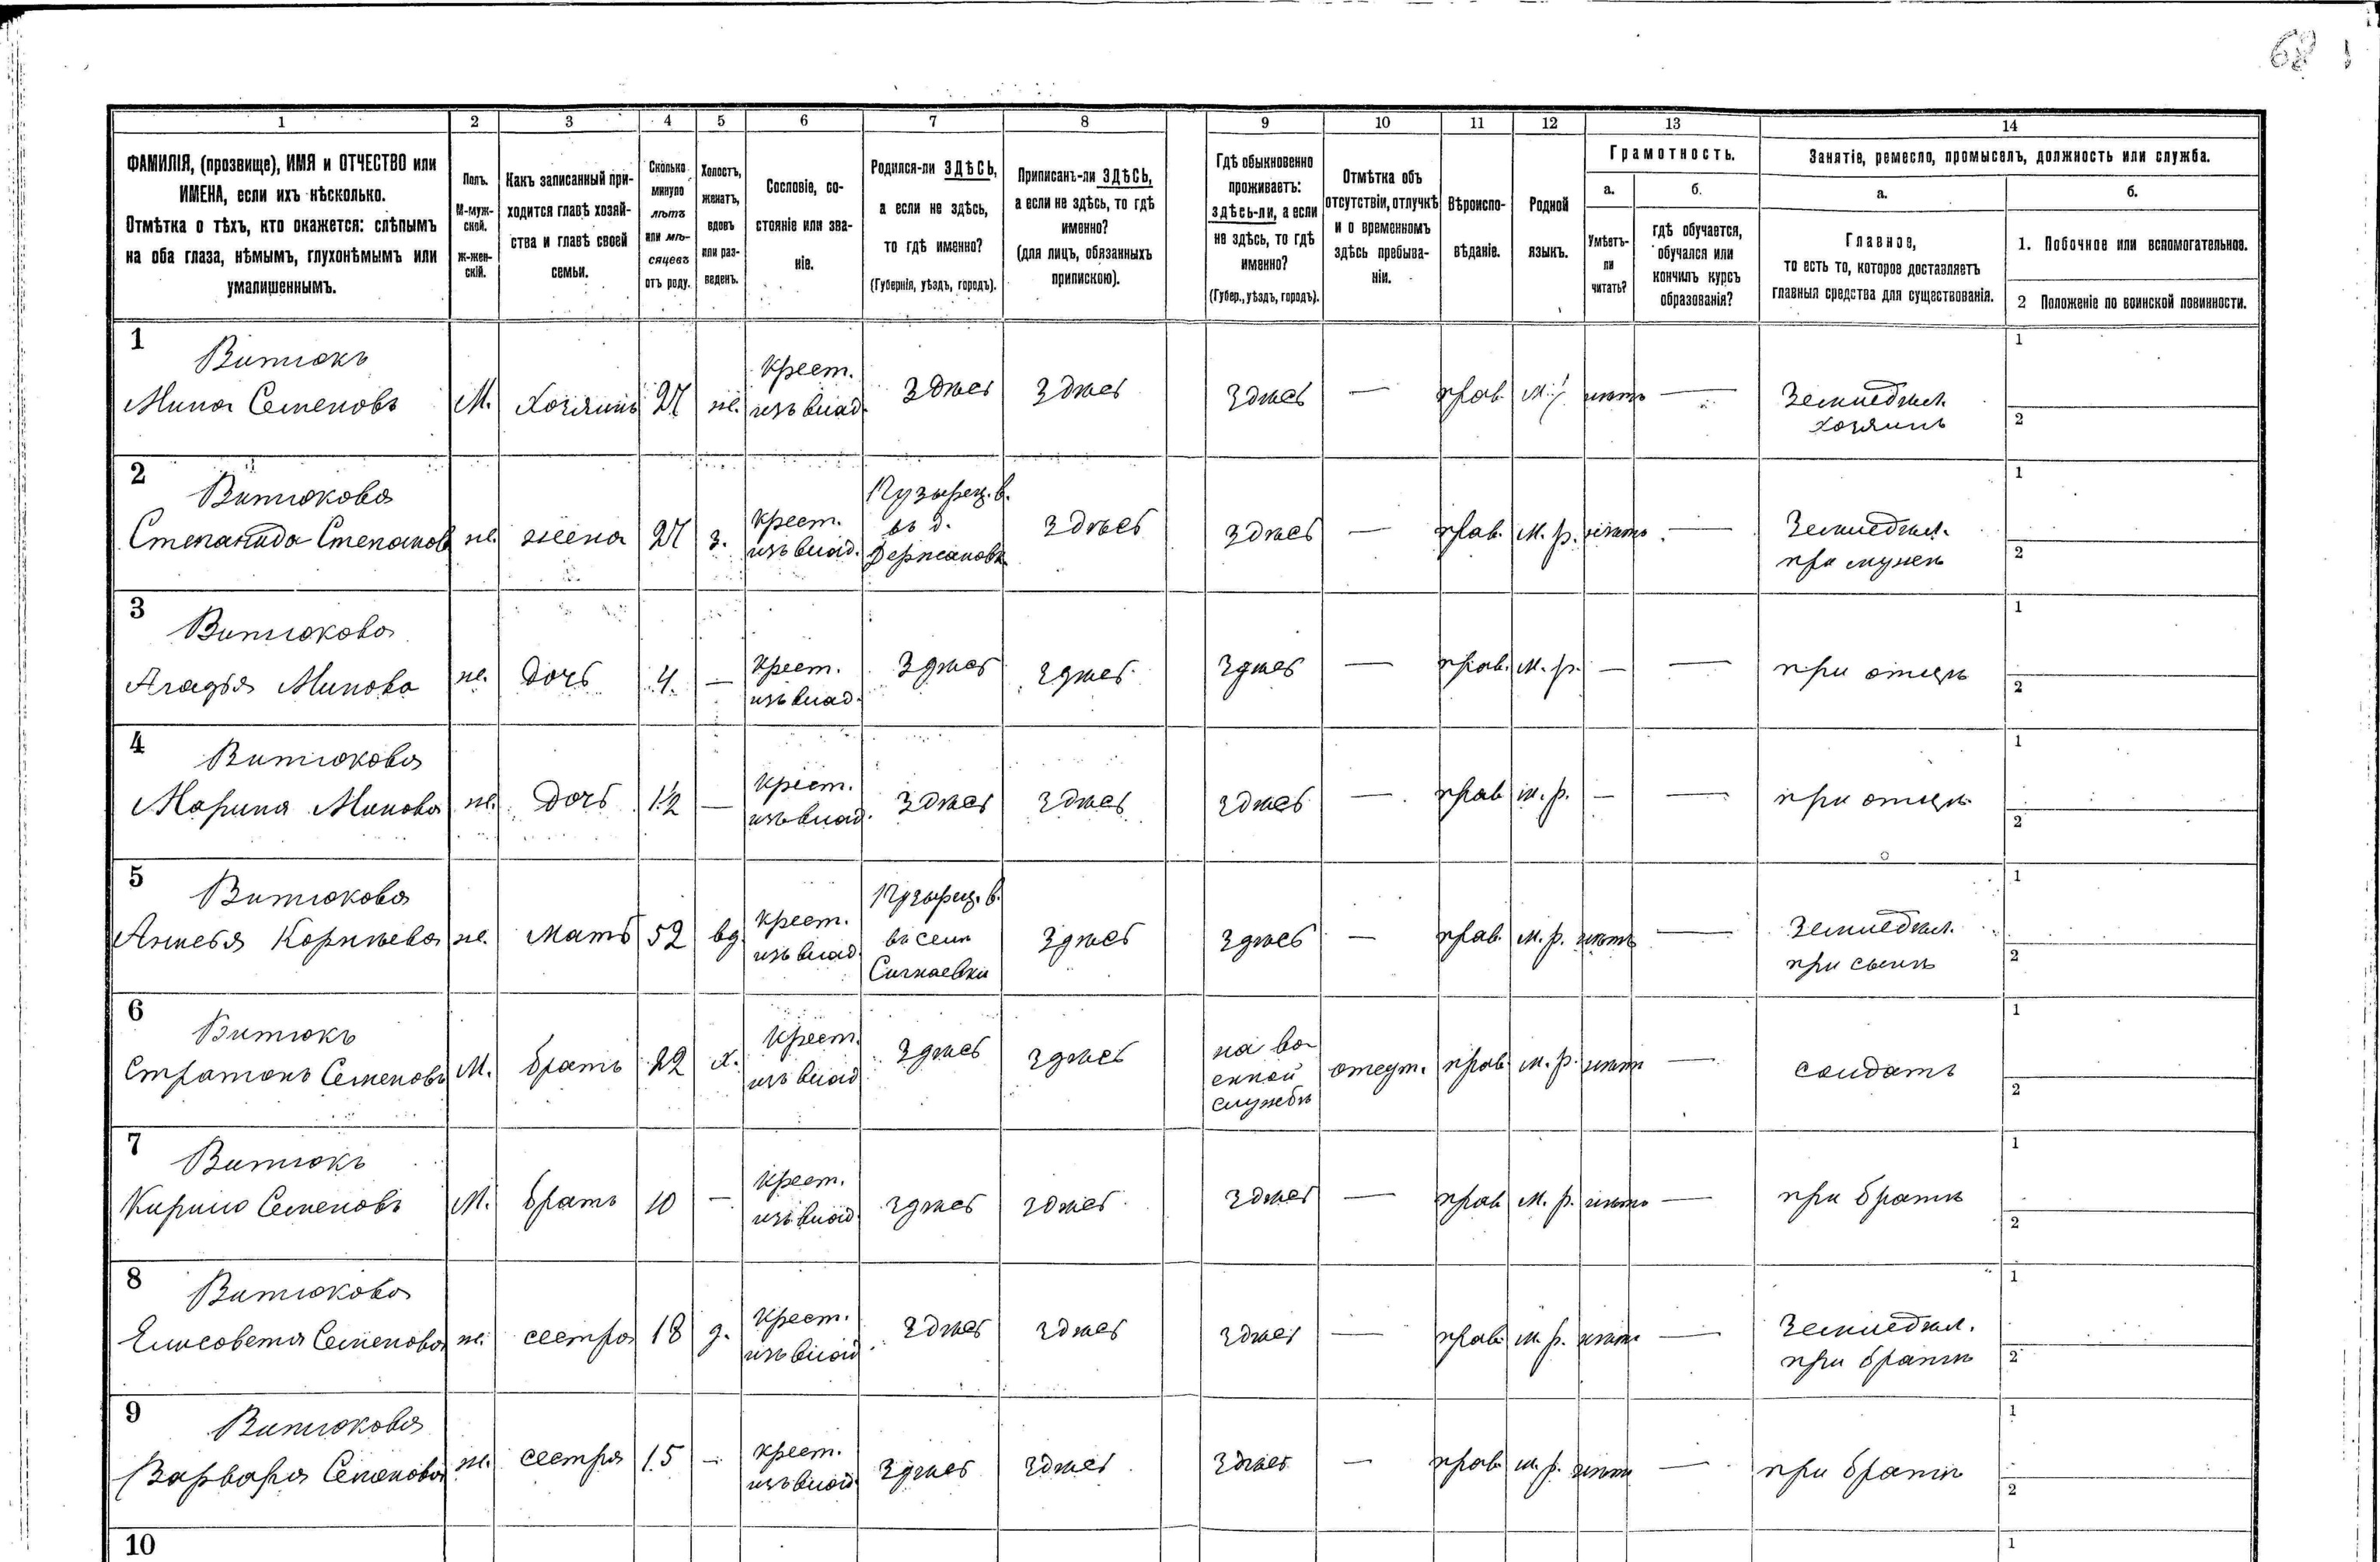 68
1 2 3 4 5 6 7 8 9 10 11 12 13 14
ФАМИЛІЯ, (прозвище), ИМЯ и ОТЧЕСТВО или
ИМЕНА, если ихъ нѣсколько.
Отмѣтка о тѣхъ, кто окажется: слѣпымъ
на оба глаза, нѣмымъ, глухонѣмымъ или
умалишеннымъ.
Полъ.
М-муж-
ской.
Ж-жен-
скій.
Какъ записанный при-
ходится главѣ хозяй-
ства и главѣ своей
семьи.
Сколько
минуло
лѣтъ
или мѣ-
сяцевъ
отъ роду.
Холостъ,
женатъ,
вдовъ
или раз-
веденъ.
Сословіе, со-
стояніе или зва-
ніе.
Родился-ли ЗДѢСЬ,
а если не здѣсь,
то гдѣ именно?
(Губернія, уѣздъ, городъ).
Приписанъ-ли ЗДѢСЬ,
а если не здѣсь, то гдѣ
именно?
(для лицъ, обязанныхъ
припискою).
Гдѣ обыкновенно
проживаетъ:
здѣсь-ли, а если
не здѣсь, то гдѣ
именно?
(Губер., уѣздъ, городъ).
Отмѣтка объ
отсутствіи, отлучкѣ
и о временномъ
здѣсь пребыва-
ніи.
Вѣроиспо-
вѣданіе.
Родной
языкъ.
Грамотность.
а.
Умѣетъ-
ли
читать?
б.
гдѣ обучается,
обучался или
кончилъ курсъ
образованія?
Занятіе, ремесло, промыселъ, должность или служба.
а.
Главное,
то есть то, которое доставляетъ
главныя средства для существованія.
б.
1. Побочное или вспомогательное.
2 Положеніе по воинской повинности.
1
Витюкъ
Мина Семеновъ М. хозяинъ 27 ж. крест.
изъ влад. здѣсь здѣсь здѣсь — прав. м. р. нѣтъ — Земледѣл.
хозяинъ
1
2
2
Витюкова
Степанида Степанов ж. жена 27 з. крест.
изъ влад. Пузырец. в.
въ д.
Держановк. здѣсь здѣсь — прав. м. р. нѣтъ — Земледѣл.
при мужѣ
1
2
3
Витюкова
Агафья Минова ж. дочь 4 — крест.
изъ влад. здѣсь здѣсь здѣсь — прав. м. р. — — при отцѣ
1
2
4
Витюкова
Марина Минова ж. дочь 1/2 — крест.
изъ влад. здѣсь здѣсь здѣсь — прав. м. р. — — при отцѣ
1
2
5
Витюкова
Корнѣева ж. мать 52 вд. крест.
изъ влад. Пузырец. в.
въ селѣ
здѣсь здѣсь — прав. м. р. нѣтъ — Земледѣл.
при сынѣ
1
2
6
Витюкъ
Стратонъ Семеновъ М. братъ 22 х. крест.
изъ влад. здѣсь здѣсь на во-
енной
службѣ отсут. прав. м. р. нѣтъ — солдатъ
1
2
7
Витюкъ
Кирило Семеновъ М. братъ 10 — крест.
изъ влад. здѣсь здѣсь здѣсь — прав. м. р. нѣтъ — при братѣ
1
2
8
Витюкова
Елисовета Семенова ж. сестра 18 д. крест.
изъ влад. здѣсь здѣсь здѣсь — прав. м. р. нѣтъ — Земледѣл.
при братѣ
1
2
9
Витюкова
Варвара Семенова ж. сестра 15 — крест.
изъ влад. здѣсь здѣсь здѣсь — прав. м. р. нѣтъ — при братѣ
1
2
10
1